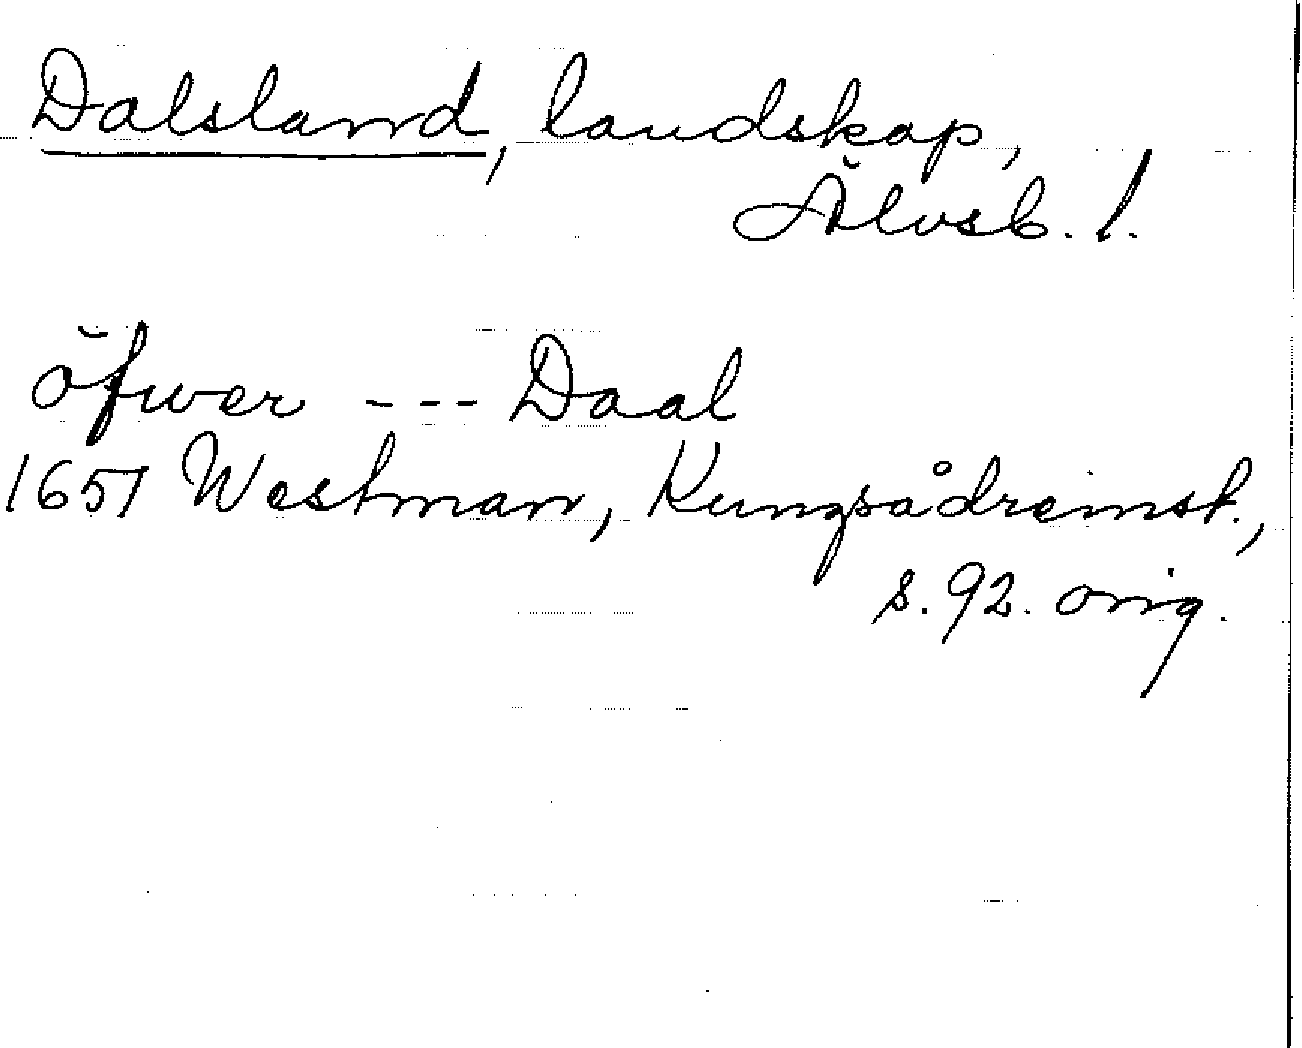 Dalsland, landskap,
Älvsb. l.
öfwer --- Daal
1651 Westman, Kungsådreinst.,
s. 92. orig.